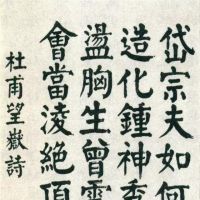 岱宗夫如何
造化鍾神秀
盪胸生曾雲
會當淩絕頂
杜甫望嶽詩